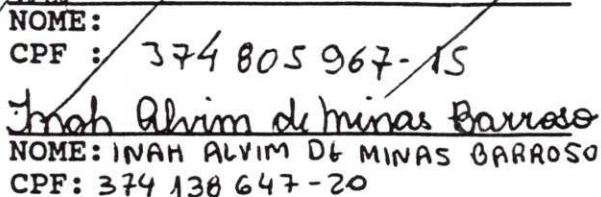 NOME:
CPF : 374 805 967-15
Inah Alvim de Minas Barroso
NOME: INAH ALVIM DE MINAS BARROSO
CPF: 374 138 647-20